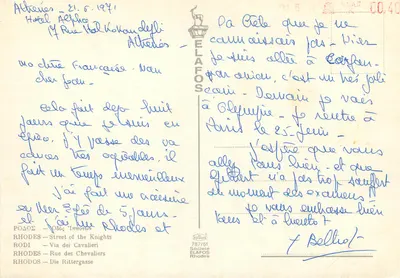 Athènes - 21.6.1971
Hotel Alpha
17 Rue Halkokondyli
Athènes -
Ma chère Françoise - Mon
cher Jean -
Cela fait déjà huit
jours que je suis en
Grèce. J'y passe des va
cances très agréables. il
fait un temps merveilleux
J'ai fait une croisière
en Mer Egée de 5 jours -
et j'ai vu Rhodes et
ΡΟΔΟΣ
RHODES — Street of the Knights
RODI — Via dei Cavalieri
RHODES — Rue des Chevaliers
RHODOS — Die Rittergasse
ELAFOS
RHODES
ELAFOS
la Crète que je ne
connaissais pas - Hier
je suis allée à Corfou
par avion, c'est un très joli
coin - Demain je vais
à Olympie - Je rentre à
Paris le 25 Juin -
J'espère que vous
allez tous bien - et que
n'a pas trop souffert
du moment des examens
Je vous embrasse bien
tous et à bientôt
0.40